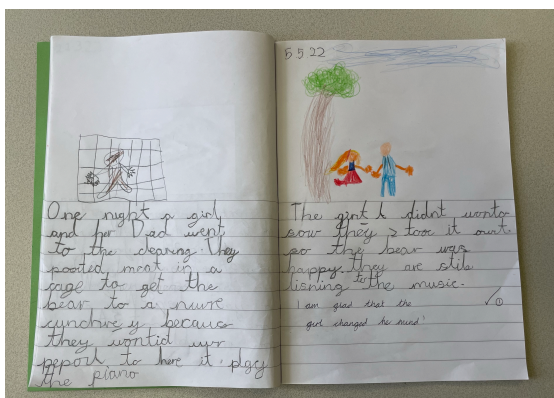 One night a girl
and her Dad went
to the clearing. They
pooted meat in a
cage to get the
bear to a nuwe
cunchre y becaus
they wontid mor
peporl to here it plgy
the piano
5 5 22
The girl didnt wonto
sow they toor it owt
so the bear was
happy. they are stils
lisning to the music.
I am glad that the
girl changed her mind!